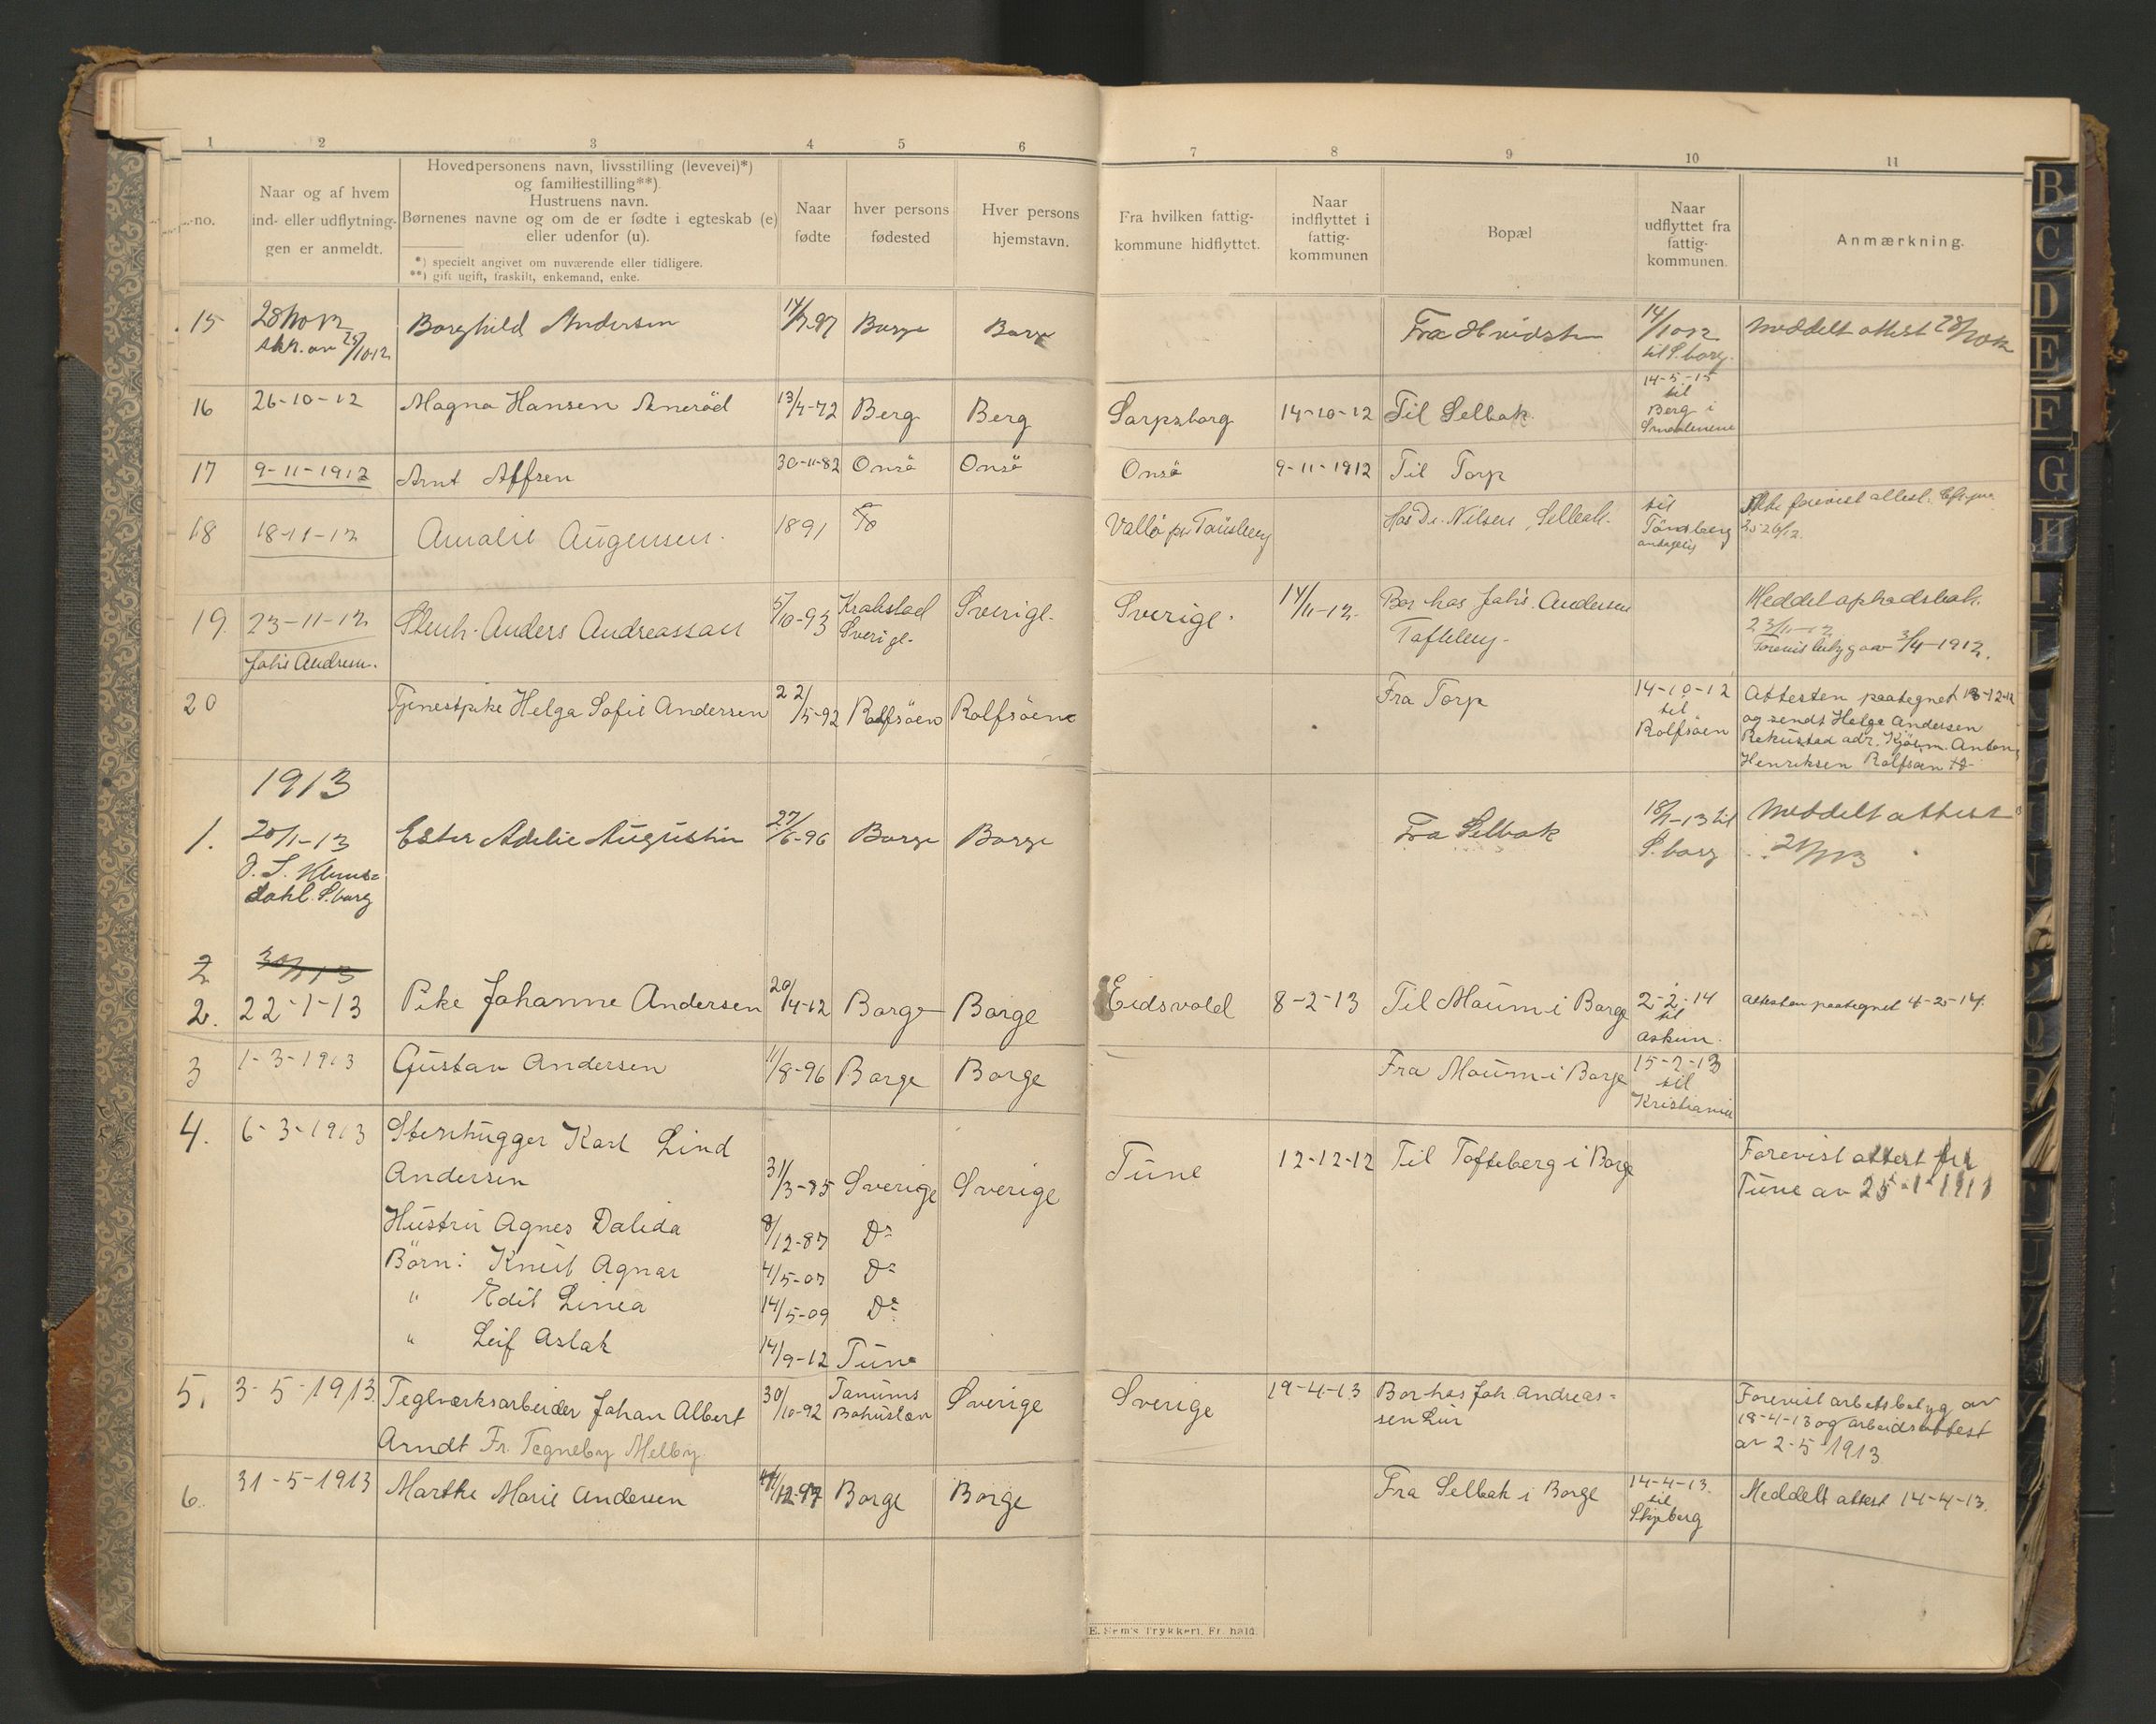 1 2 3 4 5 6 7 8 9 10 11
no.
Naar og af hvem
ind- eller udflytnin-
gen er anmeldt.
Hovedpersonens navn, livsstilling (levevei)*)
og familiestilling**).
Hustruens navn.
Børnenes navne og om de er fødte i egteskab (e)
eller udenfor (u).
*) specielt angivet om nuværende eller tidligere.
**) gift ugift, fraskilt, enkemand, enke.
Naar
fødte
hver persons
fødested
Hver persons
hjemstavn.
Fra hvilken fattig-
kommune hidflyttet.
Naar
indflyttet i
fattig-
kommunen
Bopæl
Naar
udflyttet fra
fattig-
kommunen.
Anmærkning.
15 Borghild Andersen Borge Borge meddelt attest
til S.borg.
16 26-10-12 Magna Hansen Anerød 13/4-72 Berg Berg Sarpsborg 14-10-12 Til Selbak 14-5-15
til
Berg i
Smaalenene
17 9-11-1912 Arnt Affsen 30-11-82 Onsö Onsö Onsö 9-11-1912 Til Torp
18 18-11-12 Amalie Augensen. 1891 Vallö pr Tönsberg Hos Dr. Nilsen, Selbak. til
Tönsberg
19. 23-11-12 Anders Andreassen 5/10-93 Krakstad
Sverige. Sverige. Sverige. 14/11-12. Bor hos Johs. Andersen
Tofteberg.
23/11-12
3/4-1912.
20 Tjenestpike Helga Sofie Andersen 22/5-92 Rolfsöen Rolfsöen Fra Torp 14-10-12
til
Rolfsöen
Attesten paategnet 18-12-12
og sendt Helga Andersen
adr. Kjöbm. Anton
Henriksen Rolfsöen
1913
1. 20/1-13 Ester Adelie Augustin 27/6-96 Borge Borge Fra Selbak 18/1-13 til
S.borg
meddelt attest
dahl S.borg
2
2. 22-1-13 Pike Johanne Andersen 20/4-12 Borge Borge Eidsvold 8-2-13 Til Moum i Borge 2-2-14
til
Askim.
attesten paategnet 4-2-14.
3 1-3-1913 Gustav Andersen 11/8-96 Borge Borge Fra Moum i Borge 15-2-13
til
Kristiania
4. 6-3-1913 Stenhugger Karl Lind
Andersen 31/3-85 Sverige Sverige Tune 12-12-12 Til Tofteberg i Borge Forevist attest fra
Tune av 25-1-1913
Hustru Agnes Dalida 8/12-87 Do
Börn: Knut Agnar 4/5-07 Do
" Edit Linea 14/5-09 Do
" Leif Aslak 14/9-12 Tune
5. 3-5-1913. Teglværksarbeider Johan Albert
Arndt Fr. Tegneby Melby 30/10-92 Tanums
Bohuslän Sverige Sverige 19-4-13 Bor hos Joh. Andreas-
sen Lür
Forevist arbetsbetyg av
18-4-13 og arbeidsattest
av 2-5-1913
6. 31-5-1913 Marthe Marie Andersen Borge Borge Fra Selbak i Borge 14-4-13.
til
Skjeberg
Meddelt attest 14-4-13.
E. Sem's Trykkeri, Fr. hald.
B
C
D
E
F
G
H